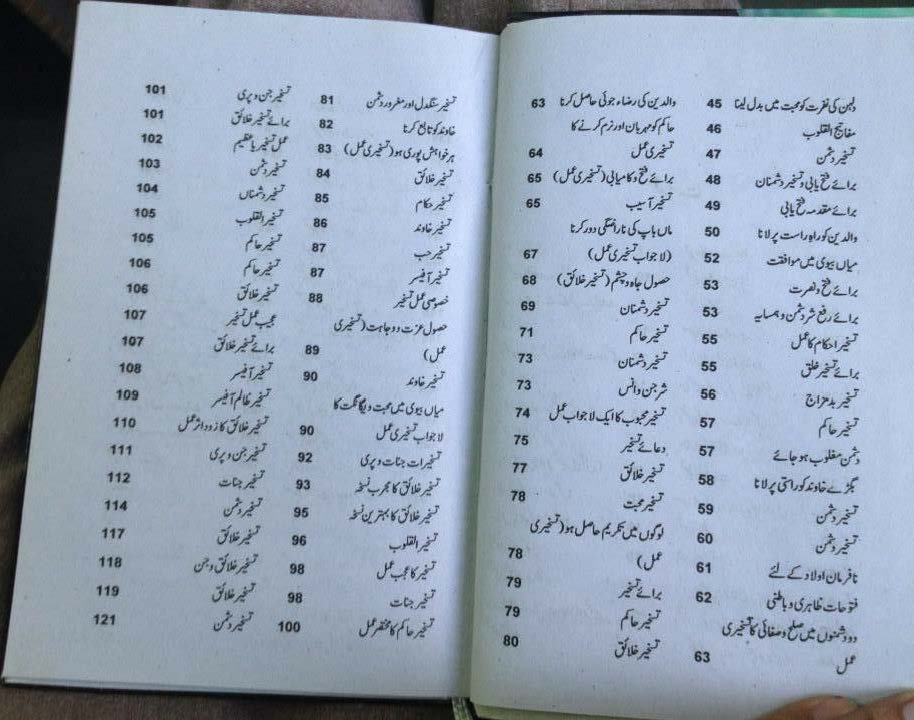 دلہن کی نفرت کو محبت میں بدل لینا 45
مفاتیح القلوب 46
تسخیر دشمن 47
برائے فتح یابی و تسخیر دشمنان 48
برائے مقدمہ فتح یابی 49
والدین کو راہ راست پر لانا 50
میاں بیوی میں موافقت 52
برائے فتح و نصرت 53
برائے رفع شر دشمن و ہمسایہ 53
تسخیر احکام کا عمل 55
برائے تسخیر خلق 55
تسخیر بد مزاج 56
تسخیر حاکم 57
دشمن مغلوب ہو جائے 57
بگڑے خاوند کو راستی پر لانا 58
تسخیر دشمن 59
تسخیر دشمن 60
نافرمان اولاد کے لئے 61
فتوحات ظاہری و باطنی 62
دو دشمنوں میں صلح و صفائی کا تسخیری
عمل 63
والدین کی رضاء جوئی حاصل کرنا 63
حاکم کو مہربان اور نرم کرنے کا
تسخیری عمل 64
برائے فتح و کامیابی (تسخیری عمل) 65
تسخیر آسیب 65
ماں باپ کی ناراضگی دور کرنا
(لاجواب تسخیری عمل) 67
حصول جاہ و چشم (تسخیر خلائق) 68
تسخیر دشمنان 69
تسخیر حاکم 71
تسخیر دشمنان 73
شر جن و انس 73
تسخیر محبوب کا ایک لاجواب عمل 74
دعائے تسخیر 75
تسخیر خلائق 77
تسخیر محبت 78
لوگوں میں تکریم حاصل ہو (تسخیری
عمل) 78
برائے تسخیر 79
تسخیر حاکم 79
تسخیر خلائق 80
تسخیر سنگدل اور مغرور دشمن 81
خاوند کو تابع کرنا 82
ہر خواہش پوری ہو (تسخیری عمل) 83
تسخیر خلائق 84
تسخیر حکام 85
تسخیر خاوند 86
تسخیر حب 87
تسخیر آفیسر 87
خصوصی عمل تسخیر 88
حصول عزت و وجاہت (تسخیری
عمل) 89
تسخیر خاوند 90
میاں بیوی میں محبت و یگانگت کا
لاجواب تسخیری عمل 90
تسخیرات جنات و پری 92
تسخیر خلائق کا مجرب نسخہ 93
تسخیر خلائق کا بہترین نسخہ 95
تسخیر القلوب 96
تسخیر کا عجب عمل 98
تسخیر جنات 98
تسخیر حاکم کا مختصر عمل 100
تسخیر جن و پری 101
برائے تسخیر خلائق 101
عمل تسخیر یا عظیم 102
تسخیر دشمن 103
تسخیر دشمناں 104
تسخیر القلوب 105
تسخیر حاکم 105
تسخیر حاکم 106
تسخیر خلائق 106
عجیب عمل تسخیر 107
برائے تسخیر خلائق 107
تسخیر آفیسر 108
تسخیر ظالم آفیسر 109
تسخیر خلائق کا زود اثر عمل 110
تسخیر جن و پری 111
تسخیر جنات 112
تسخیر دشمن 114
تسخیر خلائق 117
تسخیر خلائق و جن 118
تسخیر خلائق 119
تسخیر دشمن 121